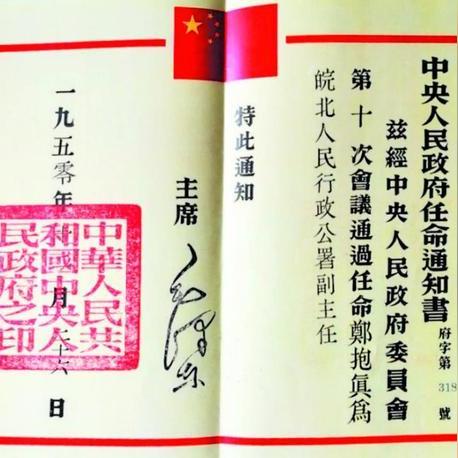 中央人民政府任命通知書
府字第 318 號
茲經中央人民政府委員會
第十次會議通過任命鄭抱眞爲
皖北人民行政公署副主任
特此通知
主席 毛澤東
一九五零年 月 日
中華人民共
和國中央人
民政府之印